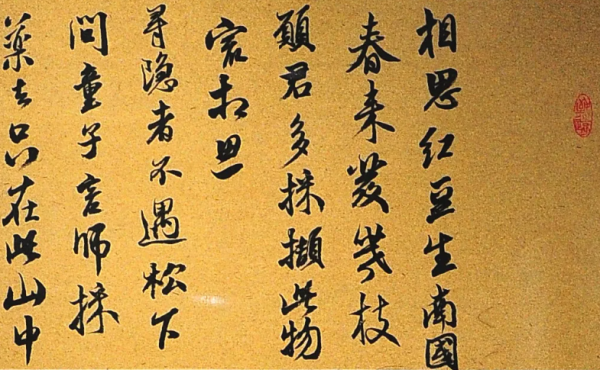 相思红豆生南國
春来發幾枝
願君多採擷此物
最相思
尋隐者不遇松下
問童子言師採
藥去只在此山中